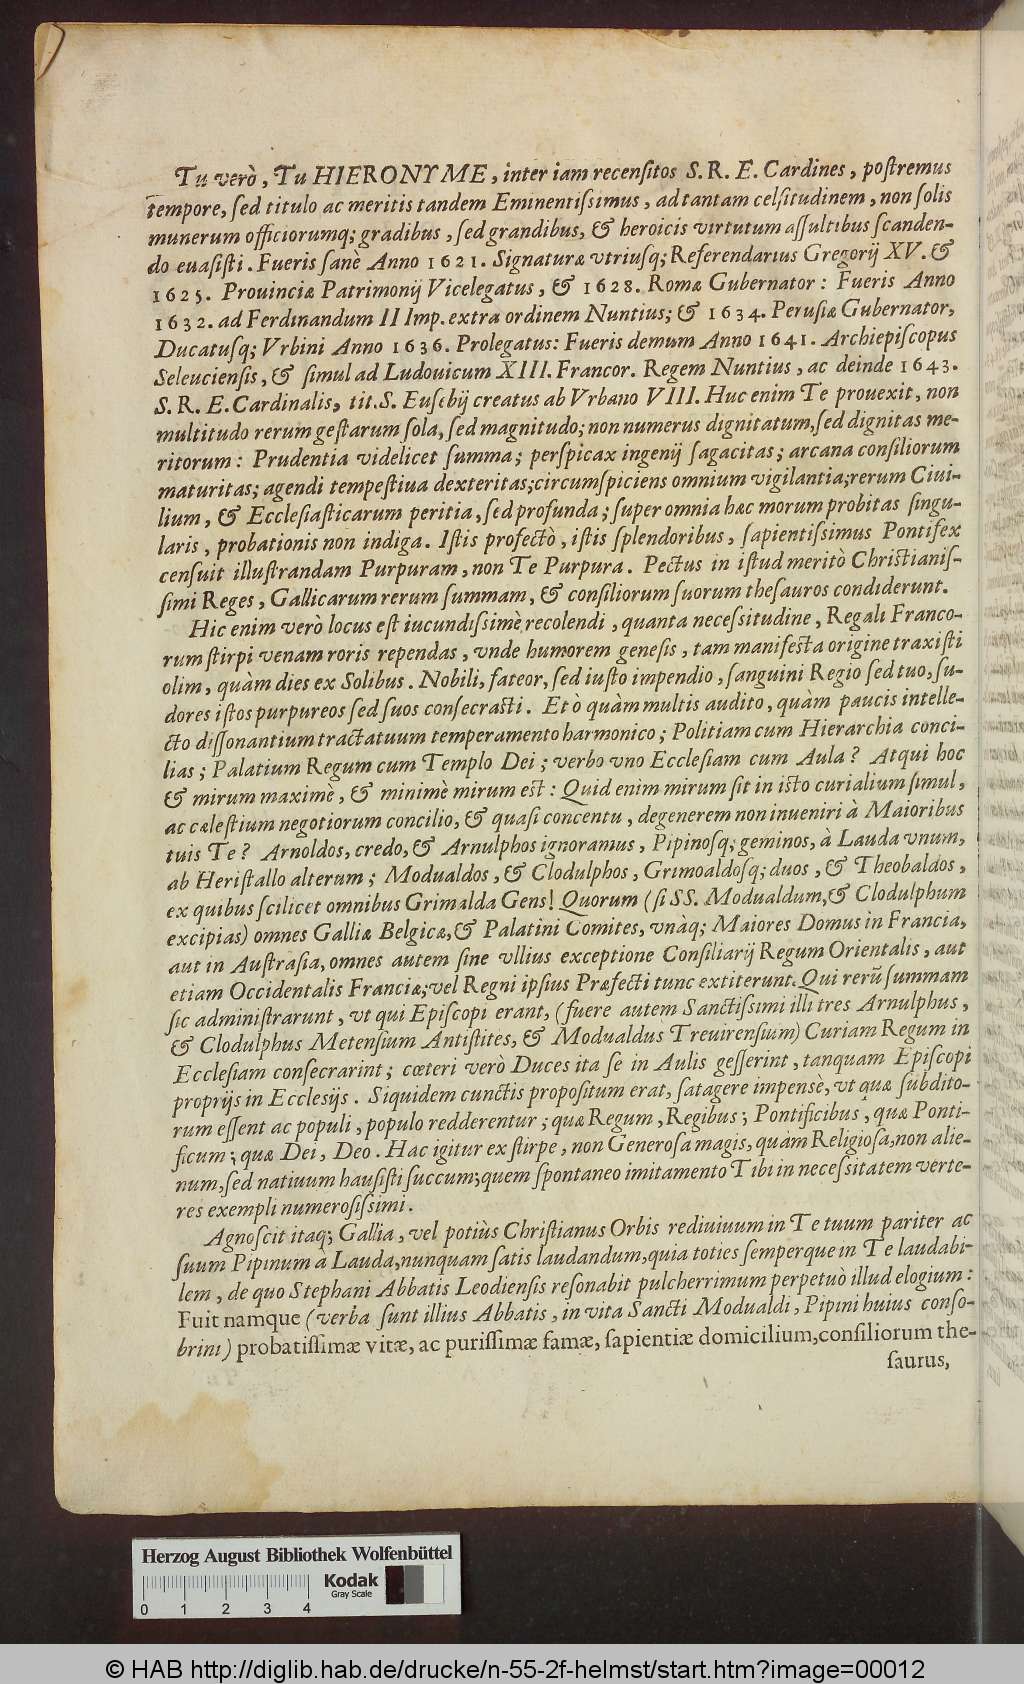 Tu verò, Tu HIERONYME, inter iam recenſitos S. R. E. Cardines, poſtremus
tempore, ſed titulo ac meritis tandem Eminentiſsimus, ad tantam celſitudinem, non ſolis
munerum officiorumq; gradibus, ſed grandibus, & heroicis virtutum aſſultibus ſcanden-
do euaſiſti. Fueris ſanè Anno 1621. Signaturæ vtriuſq; Referendarius Gregorij XV. &
1625. Prouinciæ Patrimonij Vicelegatus, & 1628. Romæ Gubernator: Fueris Anno
1632. ad Ferdinandum II Imp. extra ordinem Nuntius; & 1634. Peruſiæ Gubernator,
Ducatuſq; Vrbini Anno 1636. Prolegatus: Fueris demum Anno 1641. Archiepiſcopus
Seleucienſis, & ſimul ad Ludouicum XIII. Francor. Regem Nuntius, ac deinde 1643.
S. R. E. Cardinalis, tit. S. Euſebij creatus ab Vrbano VIII. Huc enim Te prouexit, non
multitudo rerum geſtarum ſola, ſed magnitudo; non numerus dignitatum, ſed dignitas me-
ritorum: Prudentia videlicet ſumma; perſpicax ingenij ſagacitas; arcana conſiliorum
maturitas; agendi tempeſtiua dexteritas; circumſpiciens omnium vigilantia; rerum Ciui-
lium, & Eccleſiaſticarum peritia, ſed profunda; ſuper omnia hæc morum probitas ſingu-
laris, probationis non indiga. Iſtis profectò, iſtis ſplendoribus, ſapientiſsimus Pontifex
cenſuit illuſtrandam Purpuram, non Te Purpura. Pectus in iſtud meritò Chriſtianiſ-
ſimi Reges, Gallicarum rerum ſummam, & conſiliorum ſuorum theſauros condiderunt.
Hic enim verò locus eſt iucundiſsimè recolendi, quanta neceſsitudine, Regali Franco-
rum ſtirpi venam roris rependas, vnde humorem geneſis, tam manifeſta origine traxiſti
olim, quàm dies ex Solibus. Nobili, fateor, ſed iuſto impendio, ſanguini Regio ſed tuo, ſu-
dores iſtos purpureos ſed ſuos conſecraſti. Et ò quàm multis audito, quàm paucis intelle-
cto diſſonantium tractatuum temperamento harmonico; Politiam cum Hierarchia conci-
lias; Palatium Regum cum Templo Dei; verbo vno Eccleſiam cum Aula? Atqui hoc
& mirum maximè, & minimè mirum eſt: Quid enim mirum ſit in iſto curialium ſimul,
ac cæleſtium negotiorum concilio, & quaſi concentu, degenerem non inueniri à Maioribus
tuis Te? Arnoldos, credo, & Arnulphos ignoramus, Pipinoſq; geminos, à Lauda vnum,
ab Heriſtallo alterum; Modualdos, & Clodulphos, Grimoaldoſq; duos, & Theobaldos,
ex quibus ſcilicet omnibus Grimalda Gens! Quorum (ſi SS. Modualdum, & Clodulphum
excipias) omnes Galliæ Belgicæ, & Palatini Comites, vnàq; Maiores Domus in Francia,
aut in Auſtraſia, omnes autem ſine vllius exceptione Conſiliarij Regum Orientalis, aut
etiam Occidentalis Franciæ; vel Regni ipſius Præfecti tunc extiterunt. Qui rerũ ſummam
ſic adminiſtrarunt, vt qui Epiſcopi erant, (fuere autem Sanctiſsimi illi tres Arnulphus,
& Clodulphus Metenſium Antiſtites, & Modualdus Treuirenſium) Curiam Regum in
Eccleſiam conſecrarint; cœteri verò Duces ita ſe in Aulis geſſerint, tanquam Epiſcopi
proprijs in Eccleſijs. Siquidem cunctis propoſitum erat, ſatagere impensè, vt quæ ſubdito-
rum eſſent ac populi, populo redderentur; quæ Regum, Regibus; Pontificibus, quæ Ponti-
ficum; quæ Dei, Deo. Hac igitur ex ſtirpe, non Generoſa magis, quàm Religioſa, non alie-
num, ſed natiuum hauſiſti ſuccum; quem ſpontaneo imitamento Tibi in neceſsitatem verte-
res exempli numeroſiſsimi.
Agnoſcit itaq; Gallia, vel potiùs Chriſtianus Orbis rediuiuum in Te tuum pariter ac
ſuum Pipinum à Lauda, nunquam ſatis laudandum, quia toties ſemperque in Te laudabi-
lem, de quo Stephani Abbatis Leodienſis reſonabit pulcherrimum perpetuò illud elogium:
Fuit namque (verba ſunt illius Abbatis, in vita Sancti Modualdi, Pipini huius conſo-
brini) probatiſſimæ vitæ, ac puriſſimæ famæ, ſapientiæ domicilium, conſiliorum the-
ſaurus,
Herzog August Bibliothek Wolfenbüttel
Kodak
Gray Scale
0 1 2 3 4
© HAB http://diglib.hab.de/drucke/n-55-2f-helmst/start.htm?image=00012